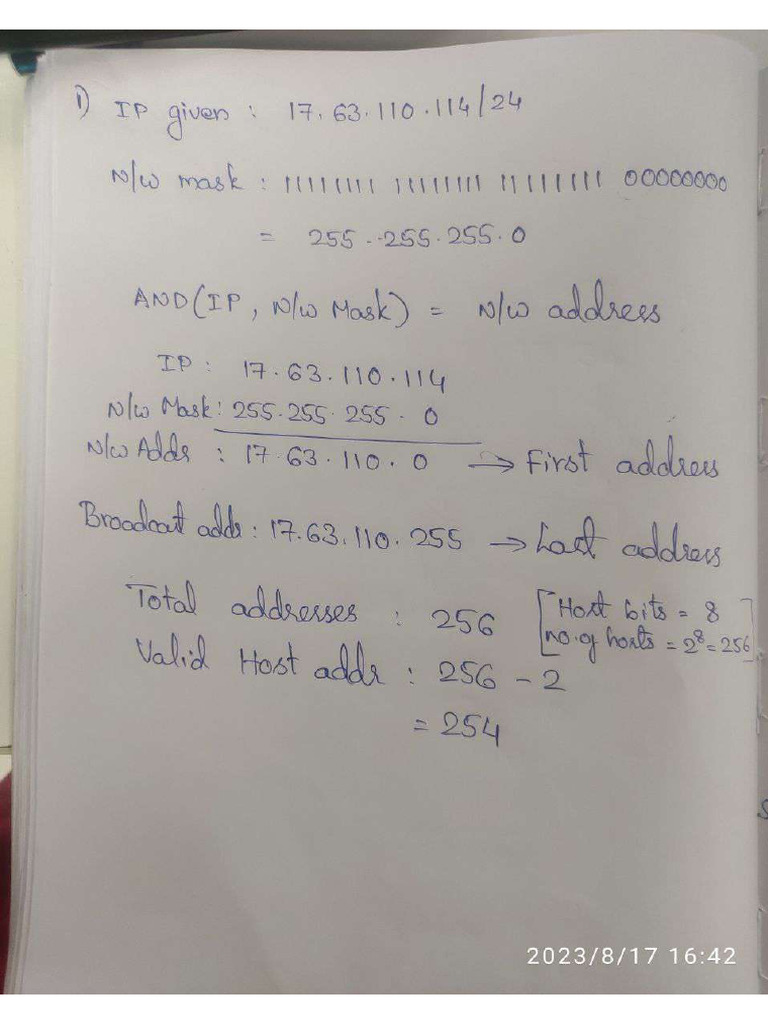 1) IP given : 17.63.110.114/24
N/w mask : 11111111 11111111 11111111 00000000
= 255.255.255.0
AND(IP, N/w Mask) = N/w address
IP : 17.63.110.114
N/w Mask : 255.255.255.0
N/w Addr : 17.63.110.0 → First address
Broadcast addr : 17.63.110.255 → Last address
Total addresses : 256 [Host bits = 8
no. of hosts = 2⁸ = 256]
Valid Host addr : 256 - 2
= 254
2023/8/17 16:42